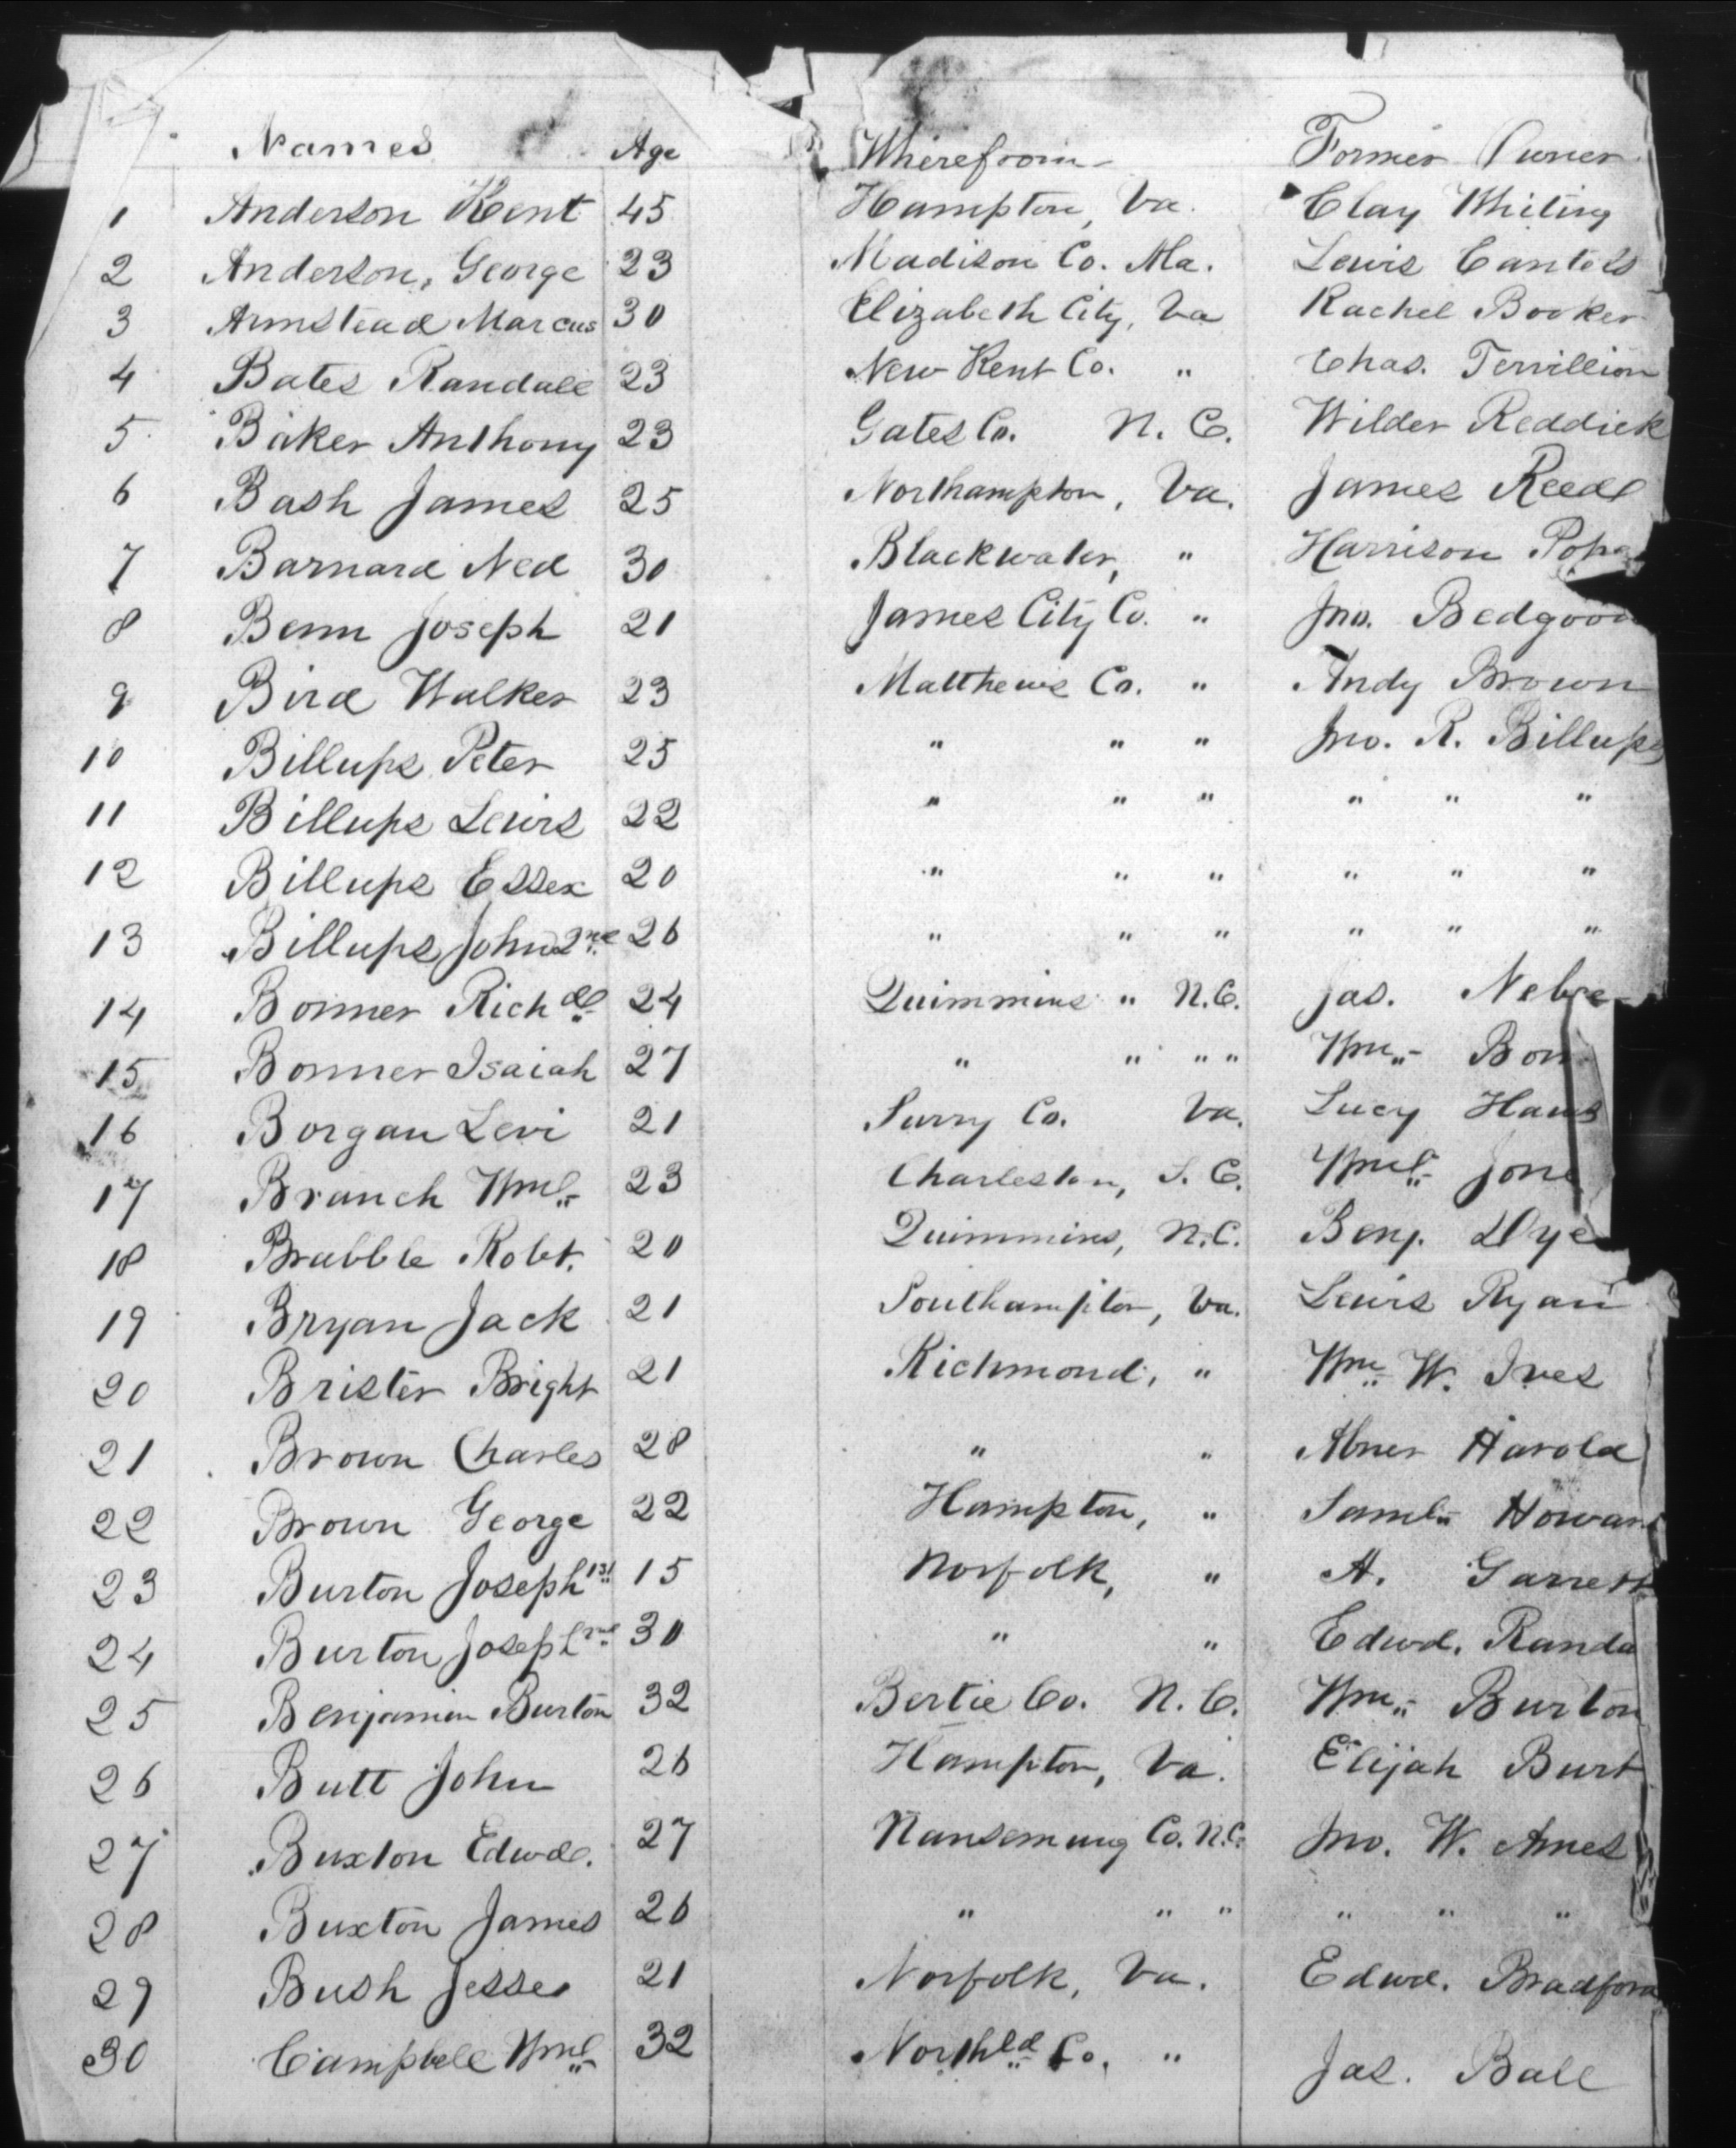 Names Age Wherefrom Former Owner
1 Anderson Kent 45 Hampton, Va. Clay Whiting
2 Anderson, George 23 Madison Co. Ala. Lewis
3 Armstead Marcus 30 Elizabeth City, Va Rachel Booker
4 Bates Randall 23 New Kent Co. " Chas. Terrillion
5 Baker Anthony 23 Gates Co. N. C. Wilder Reddick
6 Bash James 25 Northampton, Va. James Reed
7 Barnard Ned 30 Blackwater, " Harrison
8 Benn Joseph 21 James City Co. " Jno.
9 Bird Walker 23 Matthews Co. " Andy Brown
10 Billups Peter 25 " " " Jno. R. Billups
11 Billups Lewis 22 " " " " " "
12 Billups Essex 20 " " " " " "
13 Billups John 2nd 26 " " " " " "
14 Bonner Richd 24 Quimmins " N.C. Jas.
15 Bonner Isaiah 27 " " " " Wm.
16 Borgan Levi 21 Surry Co. Va. Lucy
17 Branch Wm. 23 Charleston, S. C. Wm.
18 Brabble Robt. 20 Quimmins, N.C. Benj.
19 Bryan Jack 21 Southampton, Va. Lewis Ryan
20 Brister Bright 21 Richmond, " Wm. W. Ives
21 Brown Charles 28 " " Abner Harold
22 Brown George 22 Hampton, " Saml.
23 Burton Joseph 1st 15 Norfolk, " A. Garrett
24 Burton Joseph 2nd 30 " " Edwd.
25 Benjamin Burton 32 Bertie Co. N. C. Wm. Burton
26 Butt John 26 Hampton, Va. Elijah Burt
27 Buxton Edwd. 27 Nansemung Co. N.C. Jno. W. Ames
28 Buxton James 26 " " " " " "
29 Bush Jesse 21 Norfolk, Va. Edwd. Bradford
30 Campbell Wm. 32 Northld Co. " Jas. Ball